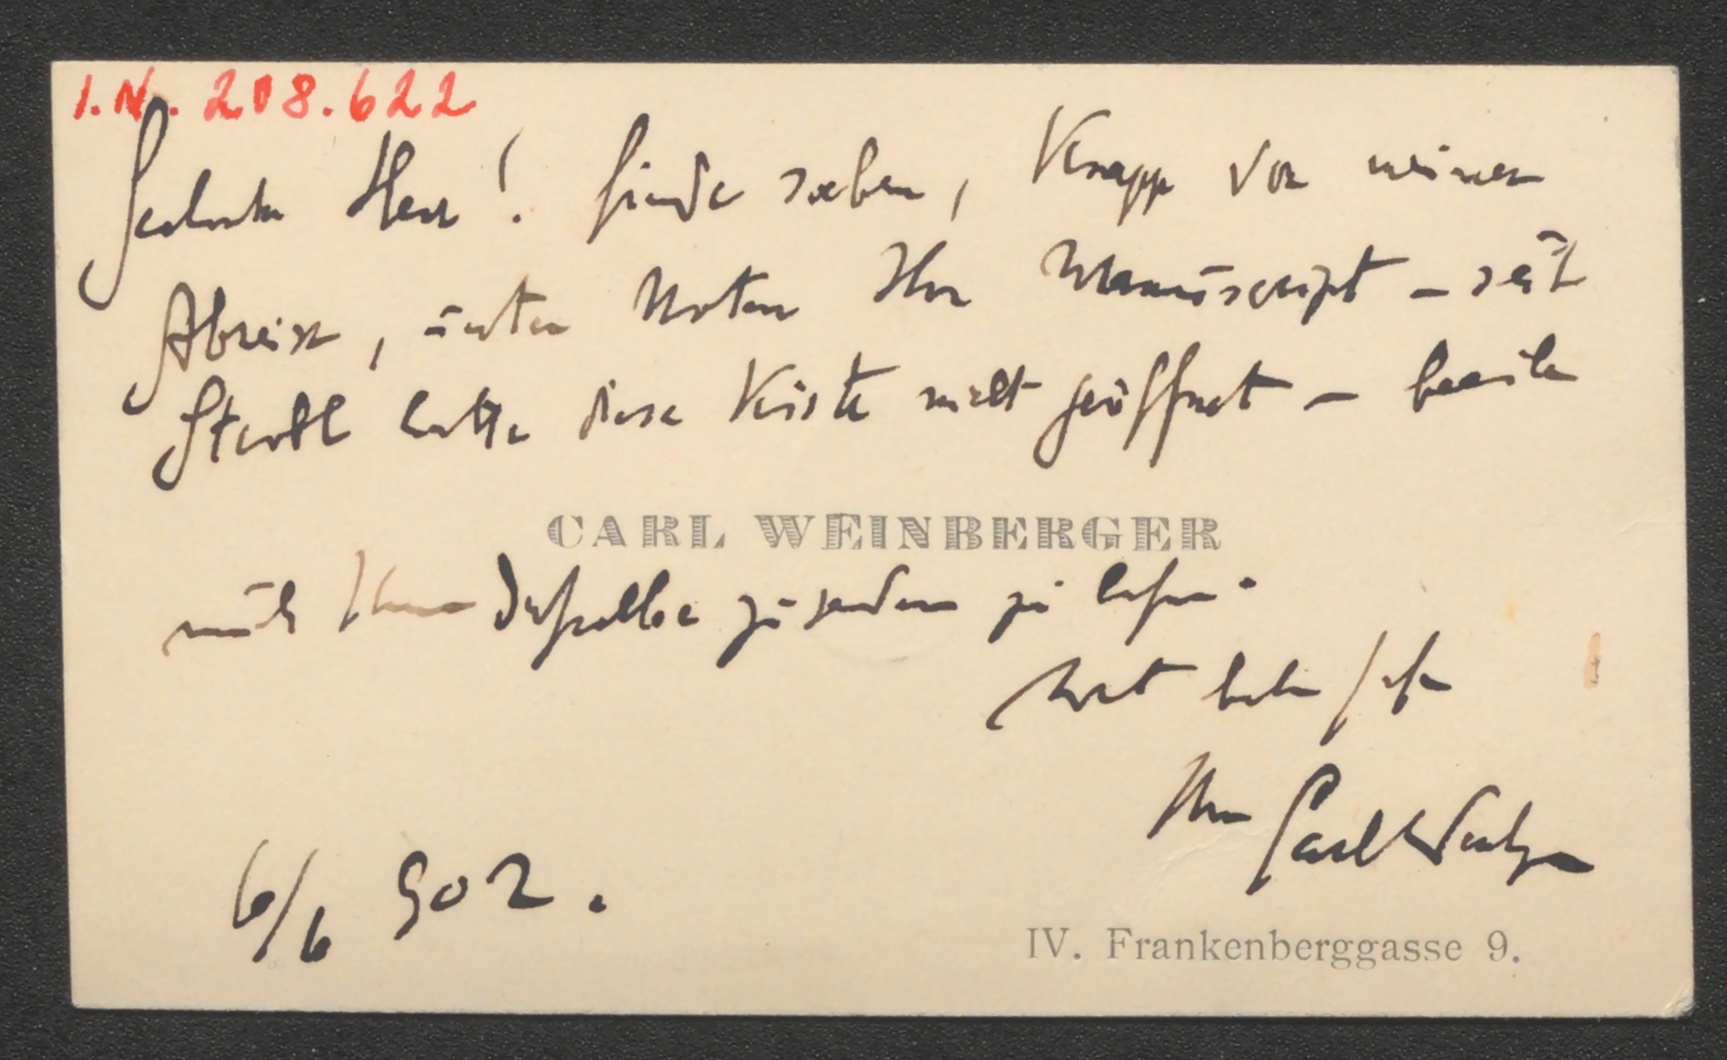 I.N. 208.622
Geehrter Herr! Finde soeben, knapp vor meiner
Abreise, unter Noten Ihr Manuscript – seit
hatte diese Kiste nicht geöffnet – beeile
CARL WEINBERGER
mich Ihnen dasselbe zusenden zu lassen.
Ihr Carl Weinberger
6/6 902.
IV. Frankenberggasse 9.